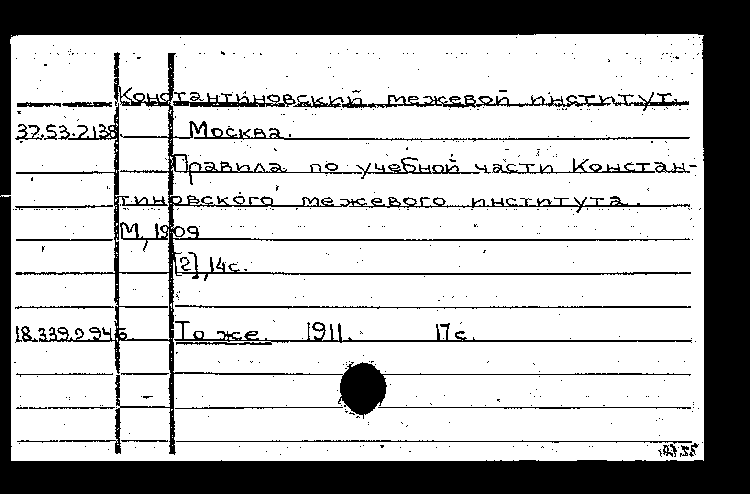 Константиновский межевой институт.
37.53.7.138. Москва.
Правила по учебной части Констан-
тиновского межевого института.
М, 1909
[2], 14с.
18.339.9.946. То же. 1911. 17с.